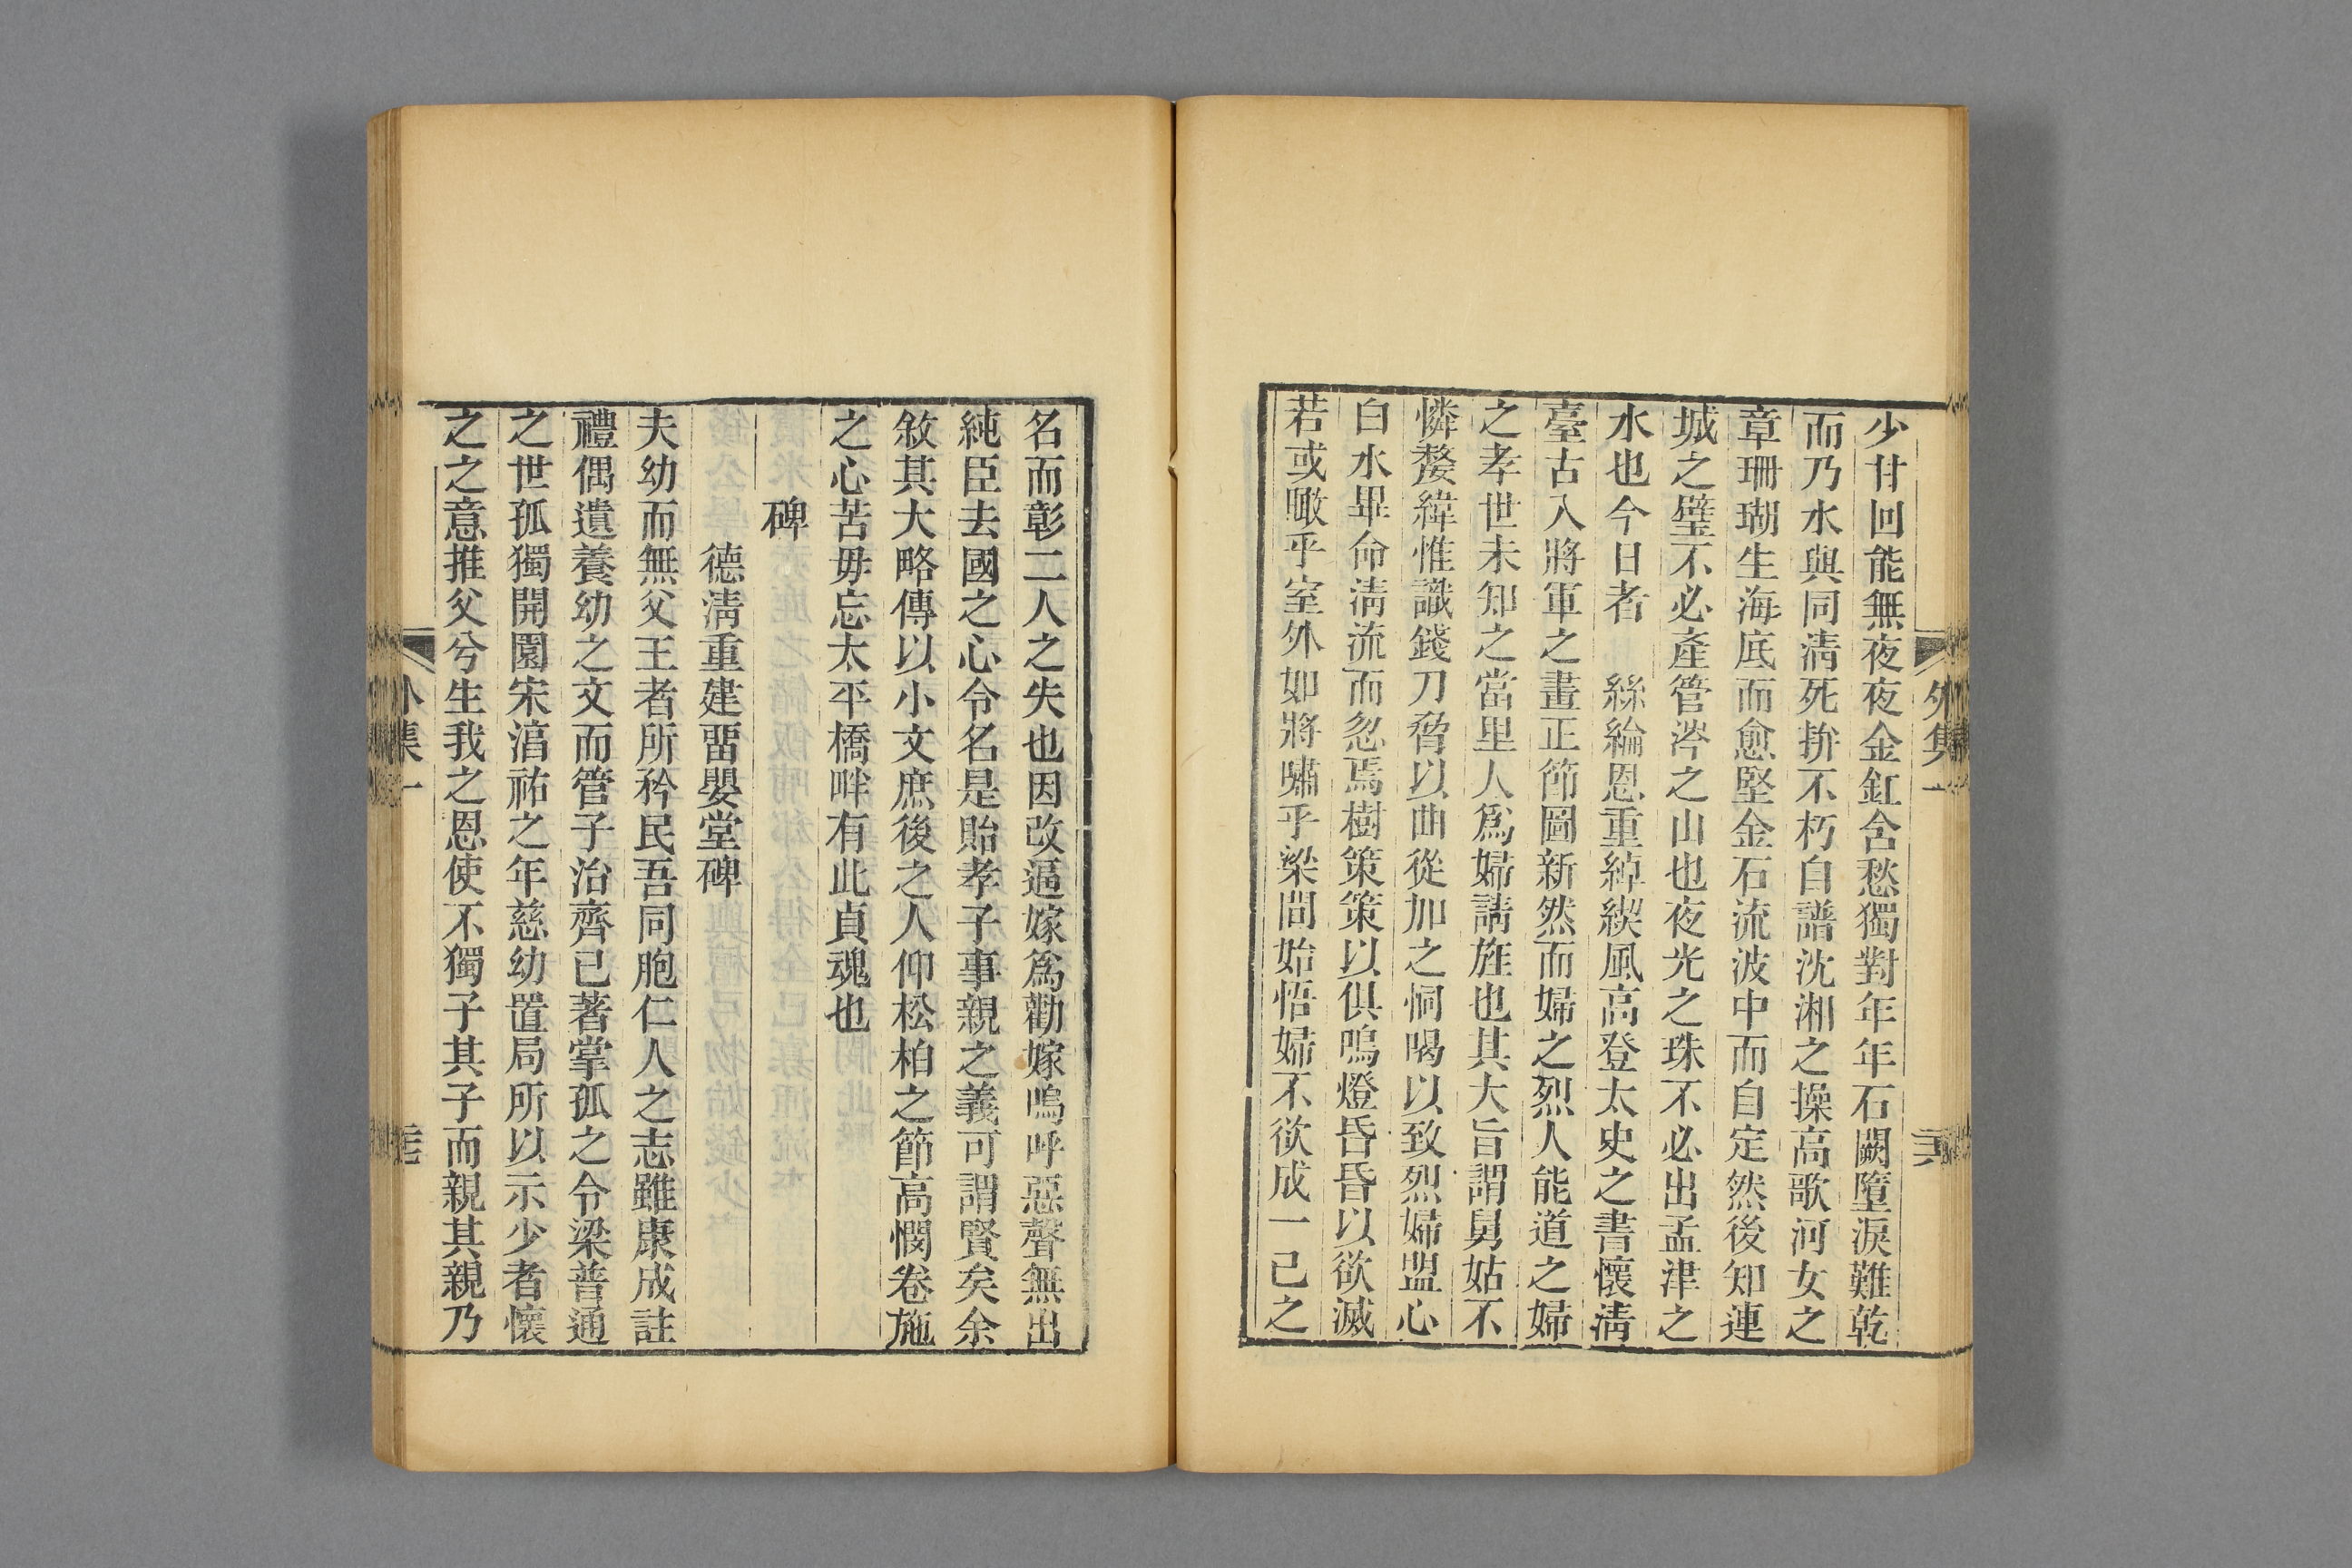 外集一
二十六
少甘回能無夜夜金釭含愁獨對年年石闕墮淚難乾
而乃水與同淸死拚不朽自譜沈湘之操高歌河女之
章珊瑚生海底而愈堅金石流波中而自定然後知連
城之璧不必產管涔之山也夜光之珠不必出孟津之
水也今日者 絲綸恩重綽楔風高登太史之書懷淸
臺古入將軍之畫正節圖新然而婦之烈人能道之婦
之孝世未知之當里人爲婦請旌也其大旨謂舅姑不
憐嫠緯惟識錢刀脅以曲從加之恫喝以致烈婦盟心
白水畢命淸流而忽焉樹策策以俱鳴燈昏昏以欲滅
若或瞰乎室外如將嘯乎梁間始悟婦不欲成一己之
名而彰二人之失也因改逼嫁爲勸嫁嗚呼惡聲無出
純臣去國之心令名是貽孝子事親之義可謂賢矣余
敘其大略傳以小文庶後之人仰松柏之節高憫卷施
之心苦毋忘太平橋畔有此貞魂也
碑
德淸重建畱嬰堂碑
夫幼而無父王者所矜民吾同胞仁人之志雖康成註
禮偶遺養幼之文而管子治齊已著掌孤之令梁普通
之世孤獨開園宋湻祐之年慈幼置局所以示少者懷
之之意推父兮生我之恩使不獨子其子而親其親乃
外集一
二十七